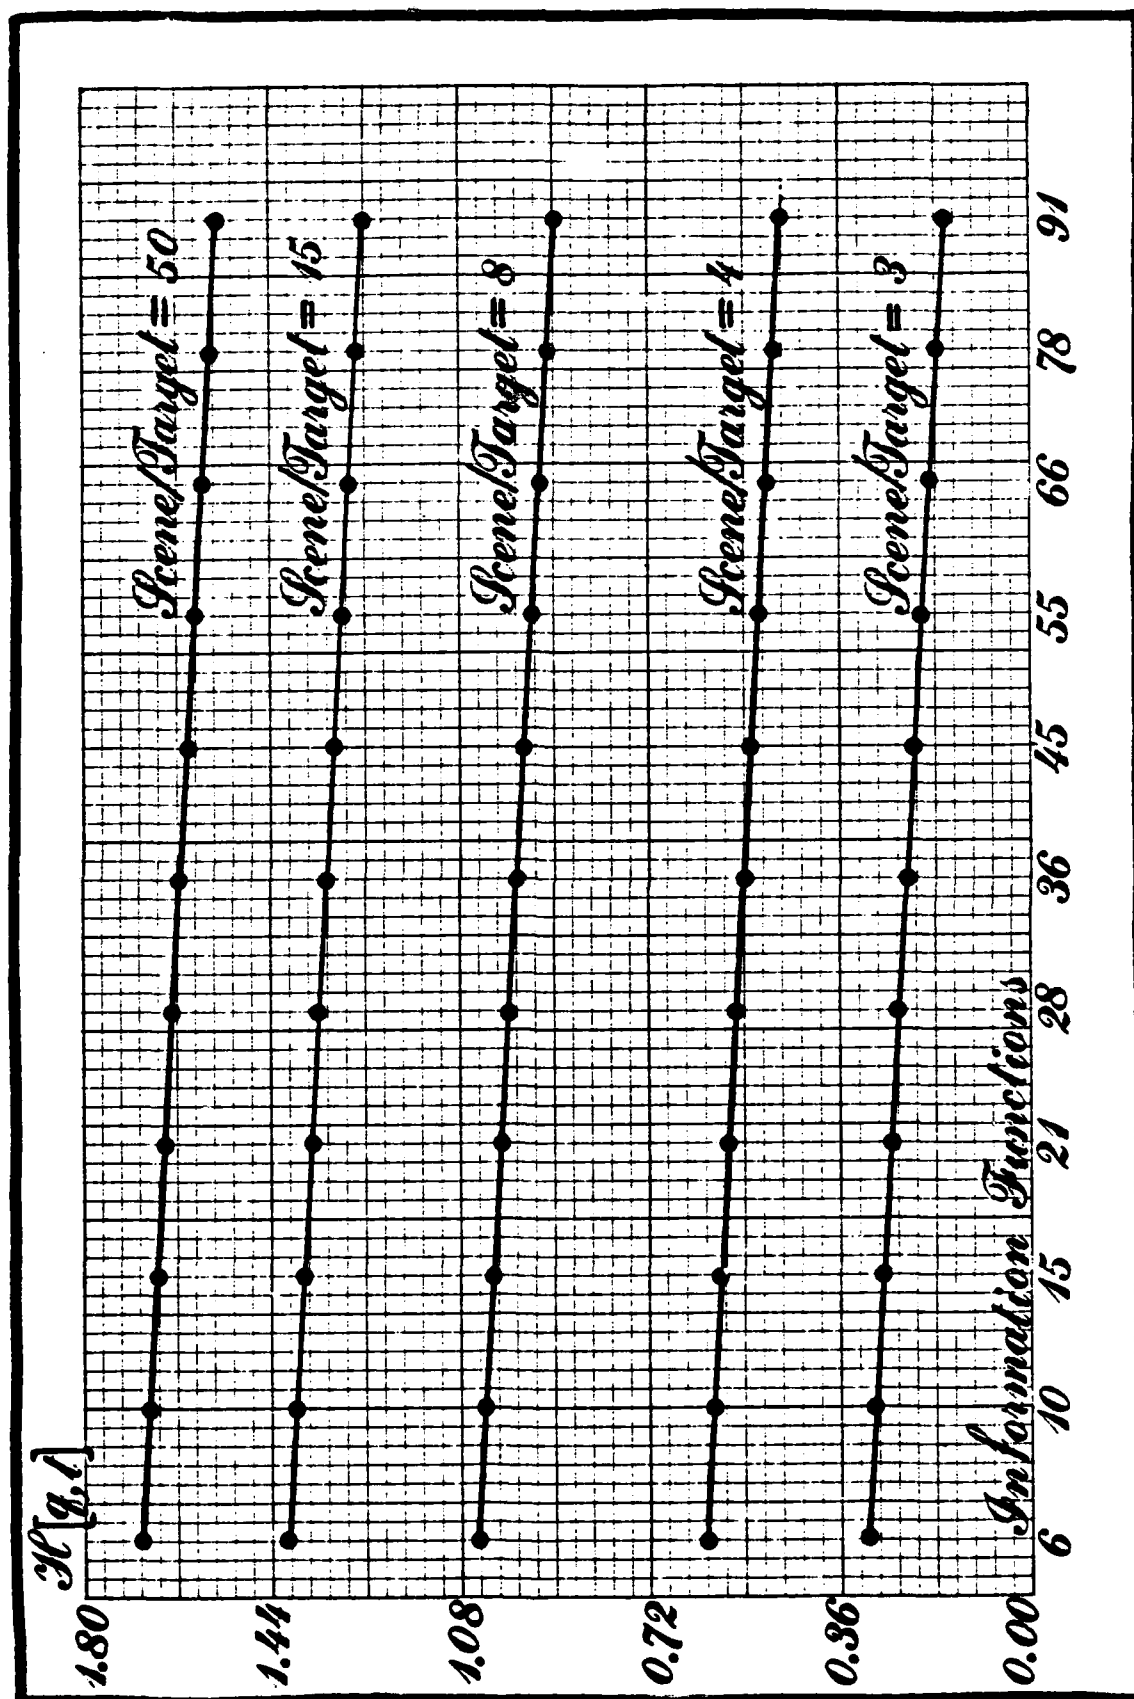 H[q,1]
1.80
1.44
1.08
0.72
0.36
0.00
Scene/Target = 50
Scene/Target = 15
Scene/Target = 8
Scene/Target = 4
Scene/Target = 3
Information Functions
6 10 15 21 28 36 45 55 66 78 91